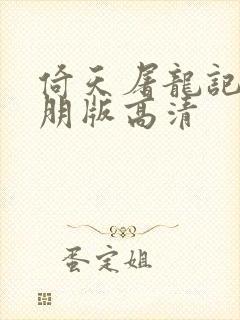 倚天屠龍記
朋版高清
蛋定姐